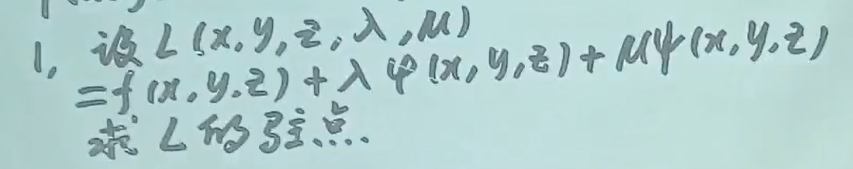 1, 设L(x,y,z,λ,μ)
=f(x,y.z)+λφ(x,y,z)+μψ(x,y,z)
求L的驻点.